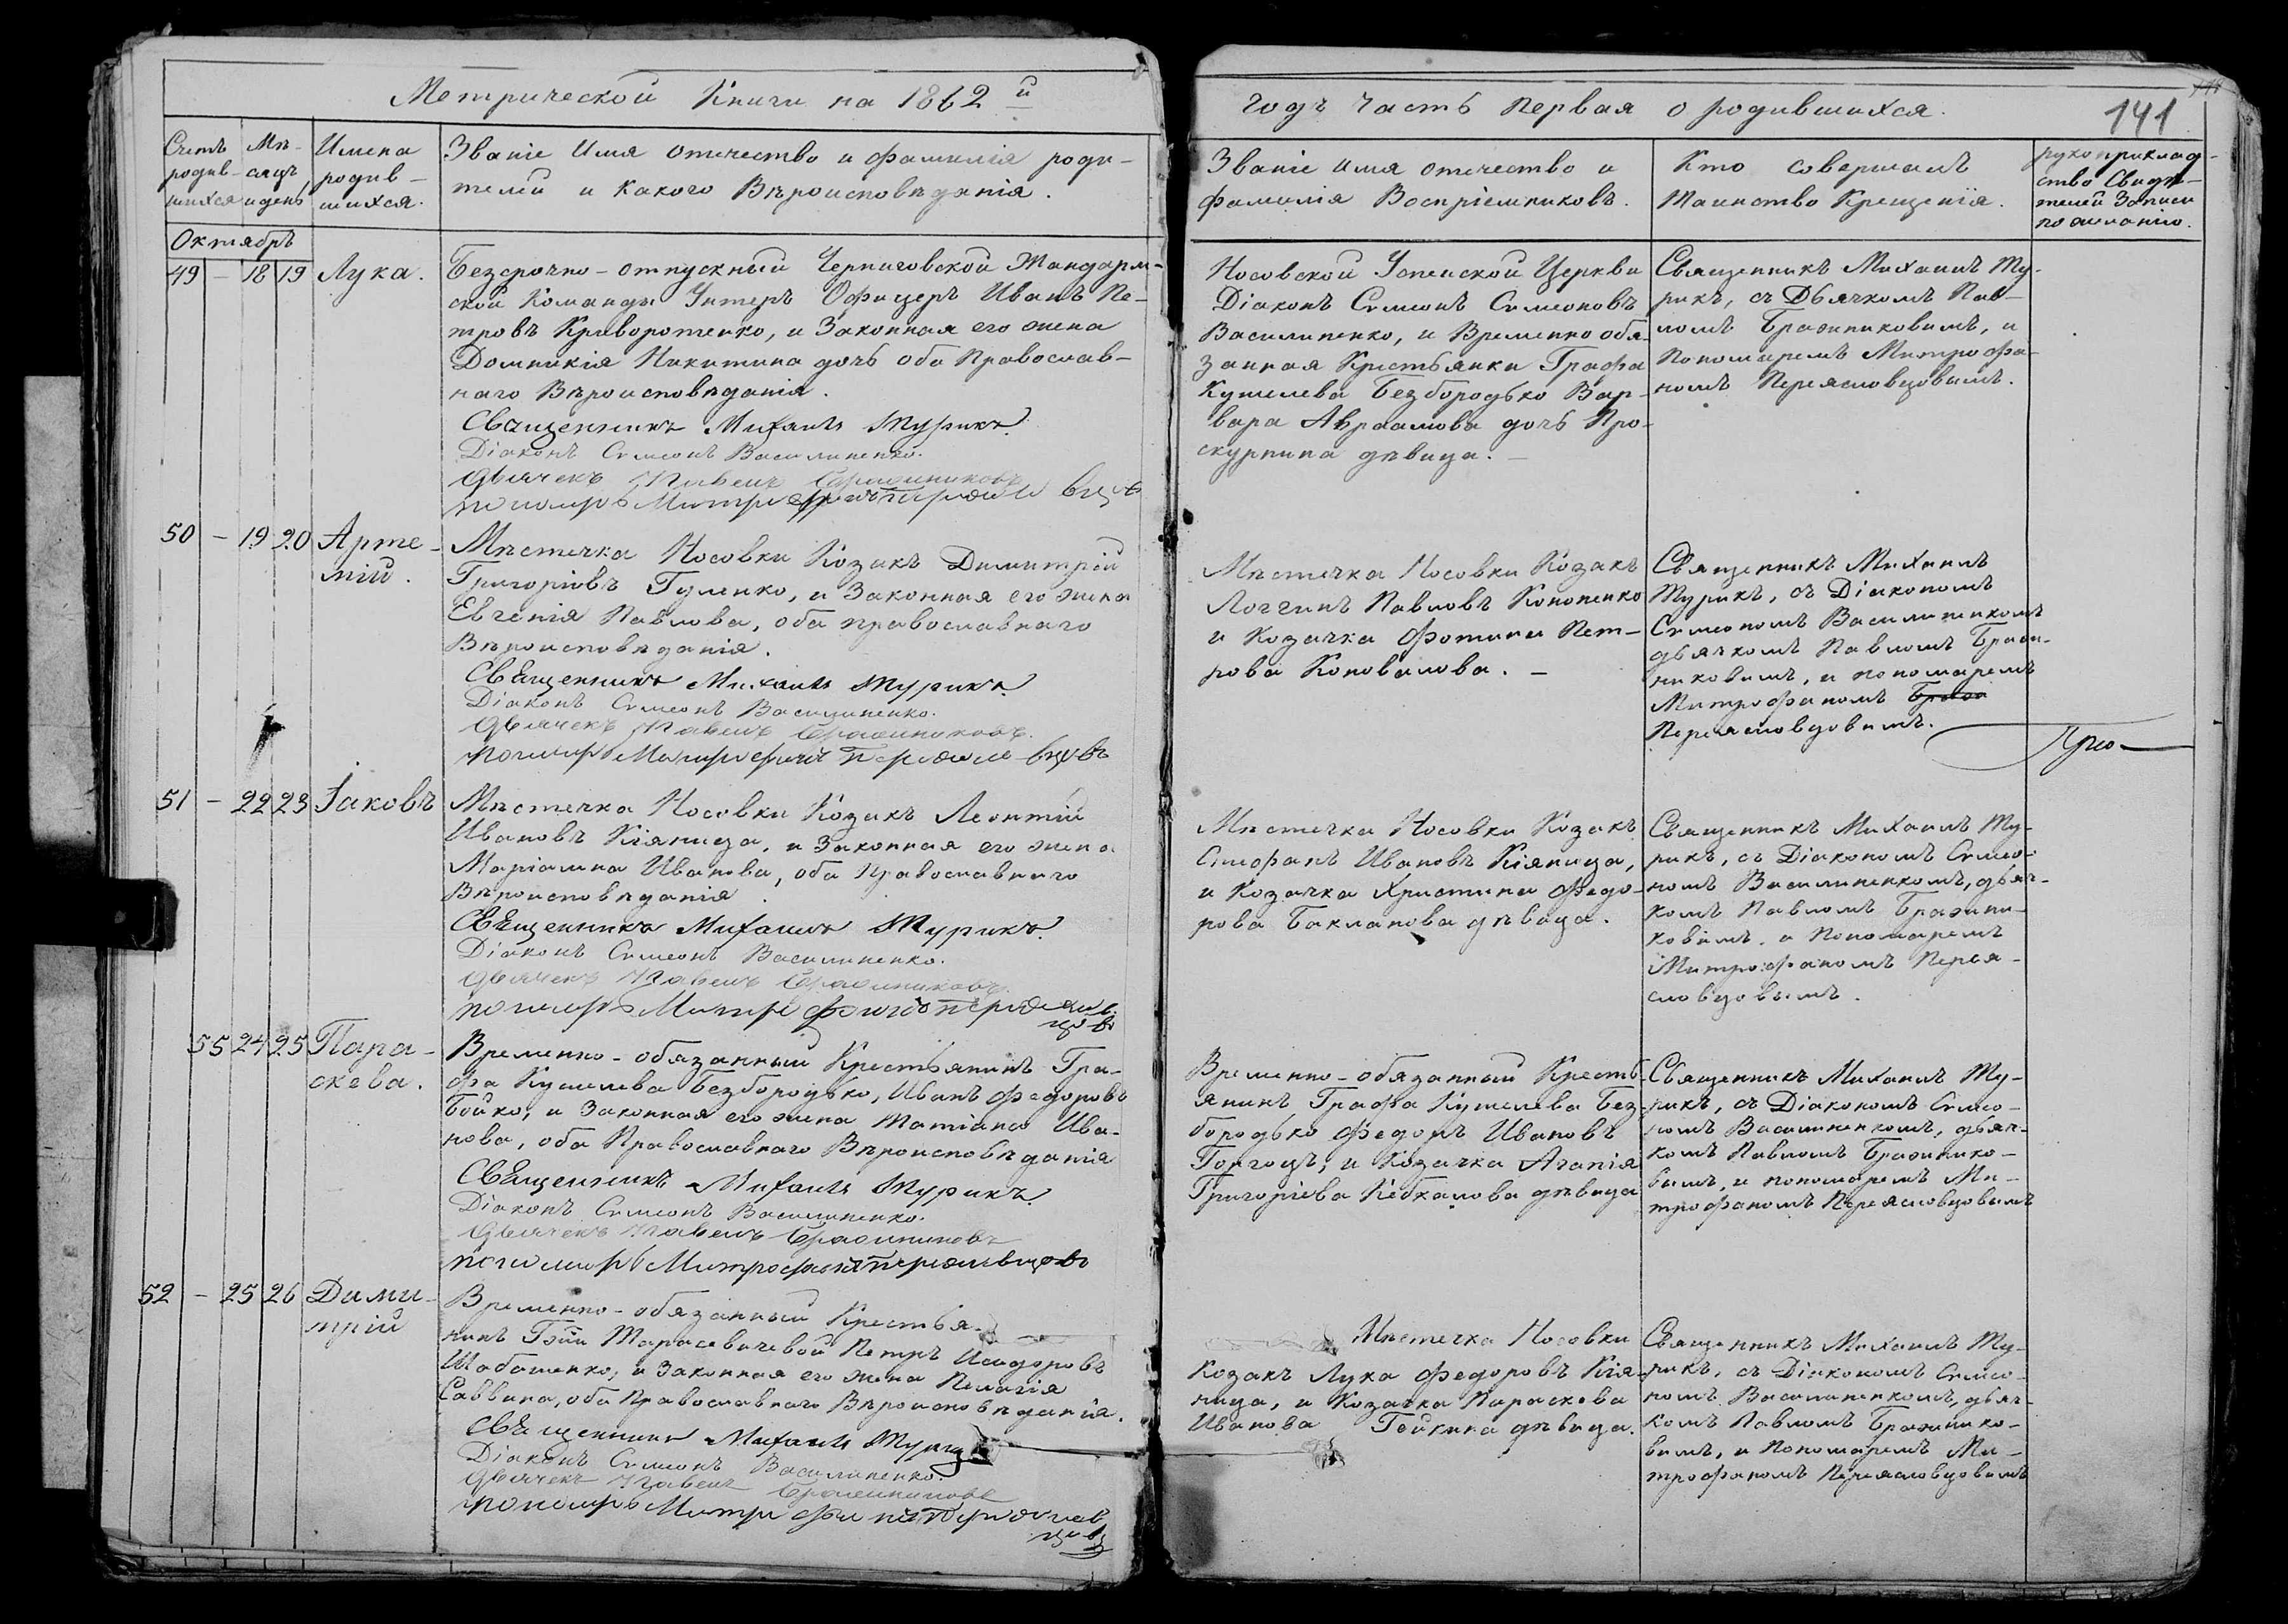 Метрической Книги на 1862 й
годъ часть первая о родившихся.
141
Счетъ родив-шихся
Мѣ-сяцъ и день
Имена родив-шихся.
Званіе Имя отчество и фамилія роди-
телей и какого Вѣроисповѣданія.
Званіе имя отчество и
фамилія Воспріемниковъ.
Кто совершалъ
Таинство Крещенія.
рукоприклад-
ство Свидѣ-
телей Записи
по желанію.
Октябръ
49 – 18 19 Лука.
Безсрочно-отпускный Черниговской Жандарм-
ской Команды Унтеръ Офицеръ Иванъ Пе-
тровъ Криворотенко, и Законная его жена
Домникія Никитина дочь оба Православ-
наго Вѣроисповѣданія.
Священникъ Михаилъ Турикъ.
Діаконъ Симеонъ Василиненко.
Дьячекъ Павелъ Бражниковъ
пономарь Митрофанъ Переяславцовъ
Носовской Успенской Церкви
Діаконъ Симеонъ Симеоновъ
Василиненко, и Временно обя-
занная Крестьянка Графа
Кушелева Безбородько Вар-
вара Авраамова дочь Про-
скурнина дѣвица. –
Священникъ Михаилъ Ту-
рикъ, съ Дьячкомъ Пав-
ломъ Бражниковимъ, и
Пономаремъ Митрофа-
номъ Переясловцовимъ.
50 – 19 20 Арте-
мій.
Мѣстечка Носовки Козакъ Димитрій
Григоріовъ Гуленко, и Законная его жена
Евгенія Павлова, оба православнаго
Вѣроисповѣданія.
Священникъ Михаилъ Турикъ.
Діаконъ Симеонъ Василиненко.
Дьячекъ Павелъ Бражниковъ.
пономарь Митрофанъ Переяславцовъ
Мѣстечка Носовки Козакъ
Логгинъ Павловъ Кононенко
и Козачка Фотина Пет-
рова Коновалова. –
Священникъ Михаилъ
Турикъ, съ Діакономъ
Симеономъ Василиненкомъ
дьячкомъ Павломъ Браж-
никовимъ, и пономаремъ
Митрофаномъ
Переясловцовимъ.
51 – 22 23 Іаковъ
Мѣстечка Носовки Козакъ Леонтій
Ивановъ Кіяница, и Законная его жена
Маріамна Иванова, оба Православнаго
Вѣроисповѣданія.
Священникъ Михаилъ Турикъ.
Діаконъ Симеонъ Василиненко.
Дьячекъ Павелъ Бражниковъ.
пономарь Митрофанъ Переяслав-
цовъ
Мѣстечка Носовки Козакъ
Стефанъ Ивановъ Кіяница,
и Козачка Христина Федо-
рова Бакланова дѣвица.
Священникъ Михаилъ Ту-
рикъ, съ Діакономъ Симео-
номъ Василиненкомъ, дьяч-
комъ Павломъ Бражни-
ковимъ, и Пономаремъ
Митрофаномъ Перея-
словцовимъ.
55 24 25 Пара-
скева.
Временно-обязанный Крестьянинъ Гра-
фа Кушелева Безбородько, Иванъ Федоровъ
Бойко, и Законная его жена Татіана Ива-
нова, оба Православнаго Вѣроисповѣданія
Священникъ Михаилъ Турикъ.
Діаконъ Симеонъ Василиненко.
Дьячекъ Павелъ Бражниковъ
пономарь Митрофанъ Переяславцовъ
Временно-обязанный Кресть-
янинъ Графа Кушелева Без-
бородько Федоръ Ивановъ
и Козачка Агапія
Григоріева дѣвица
Священникъ Михаилъ Ту-
рикъ, съ Діакономъ Симео-
номъ Василиненкомъ, дьяч-
комъ Павломъ Бражнико-
вимъ, и пономаремъ Ми-
трофаномъ Переясловцовымъ
52 – 25 26 Дими-
трій
Временно-обязанный Крестья-
нинъ Гжи Тарасевичевой Петръ Исидоровъ
Шабатенко, и Законная его жена Пелагія
Саввина, оба Православнаго Вѣроисповѣданія.
Священникъ Михаилъ Турикъ
Діаконъ Симеонъ Василиненко.
Дьячекъ Павелъ Бражниковъ
пономарь Митрофанъ Переяслав
цовъ
Мѣстечка Носовки
Козакъ Лука Федоровъ Кія-
ница, и Козачка Параскева
Иванова Гейкина дѣвица.
Священникъ Михаилъ Ту-
рикъ, съ Діакономъ Симео-
номъ Василиненкомъ, дьяч-
комъ Павломъ Бражнико-
вимъ, и Пономаремъ Ми-
трофаномъ Переясловцовимъ